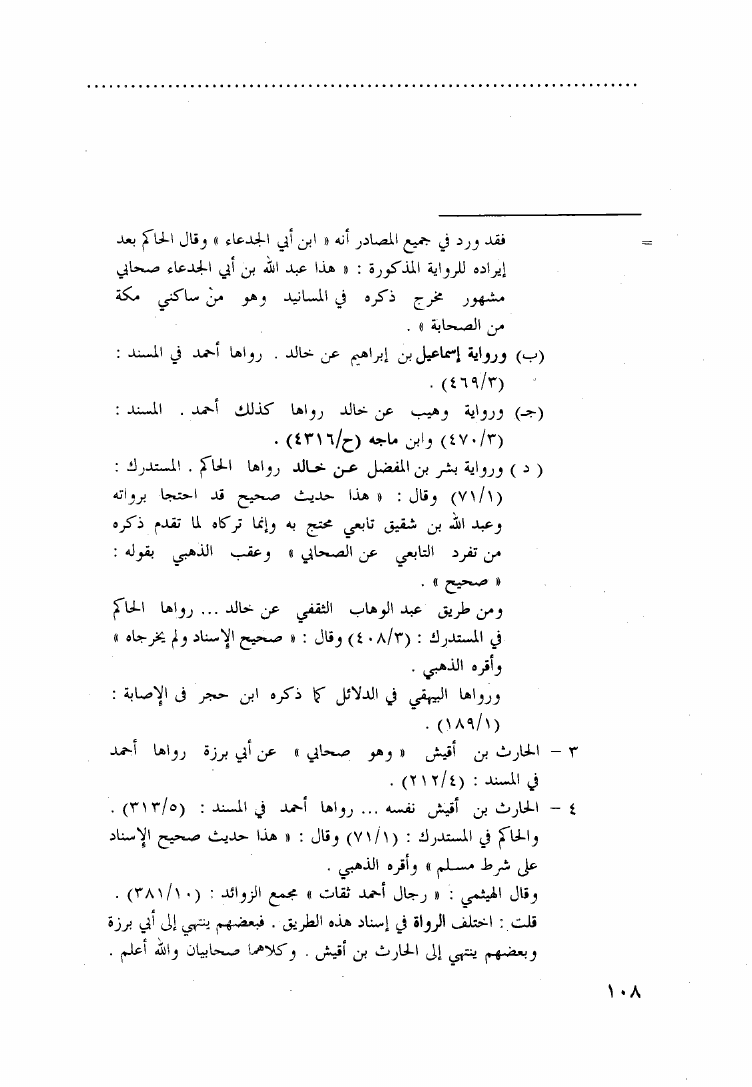 = فقد ورد في جميع المصادر أنه « ابن أبي الجدعاء » وقال الحاكم بعد
إيراده للرواية المذكورة : « هذا عبد الله بن أبي الجدعاء صحابي
مشهور مخرج ذكره في المسانيد وهو من ساكني مكة
من الصحابة » .
(ب) ورواية إسماعيل بن إبراهيم عن خالد . رواها أحمد في المسند :
(٤٦٩/٣) .
(جـ) ورواية وهيب عن خالد رواها كذلك أحمد . المسند :
(٤٧٠/٣) وابن ماجه (ح/٤٣١٦) .
( د ) ورواية بشر بن المفضل عن خالد رواها الحاكم . المستدرك :
(٧١/١) وقال : « هذا حديث صحيح قد احتجا برواته
وعبد الله بن شقيق تابعي محتج به وإنما تركاه لما تقدم ذكره
من تفرد التابعي عن الصحابي » وعقب الذهبي بقوله :
« صحيح » .
ومن طريق عبد الوهاب الثقفي عن خالد ... رواها الحاكم
في المستدرك : (٤٠٨/٣) وقال : « صحيح الإسناد ولم يخرجاه »
وأقره الذهبي .
ورواها البيهقي في الدلائل كما ذكره ابن حجر فى الإصابة :
(١٨٩/١) .
٣ – الحارث بن أقيش « وهو صحابي » عن أبي برزة رواها أحمد
في المسند : (٢١٢/٤) .
٤ – الحارث بن أقيش نفسه ... رواها أحمد في المسند : (٣١٣/٥) .
والحاكم في المستدرك : (٧١/١) وقال : « هذا حديث صحيح الإسناد
على شرط مسلم » وأقره الذهبي .
وقال الهيثمي : « رجال أحمد ثقات » مجمع الزوائد : (٣٨١/١٠) .
قلت : اختلف الرواة في إسناد هذه الطريق . فبعضهم ينتهي إلى أبي برزة
وبعضهم ينتهي إلى الحارث بن أقيش . وكلاهما صحابيان والله أعلم .
١٠٨